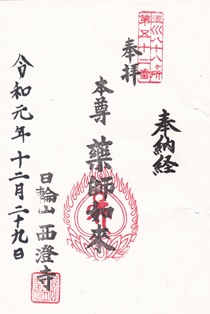 奉納経
玉川八十八ヶ所
第五十二番
奉拝
本尊 薬師如来
日輪山 西澄寺
令和元年十二月二十九日